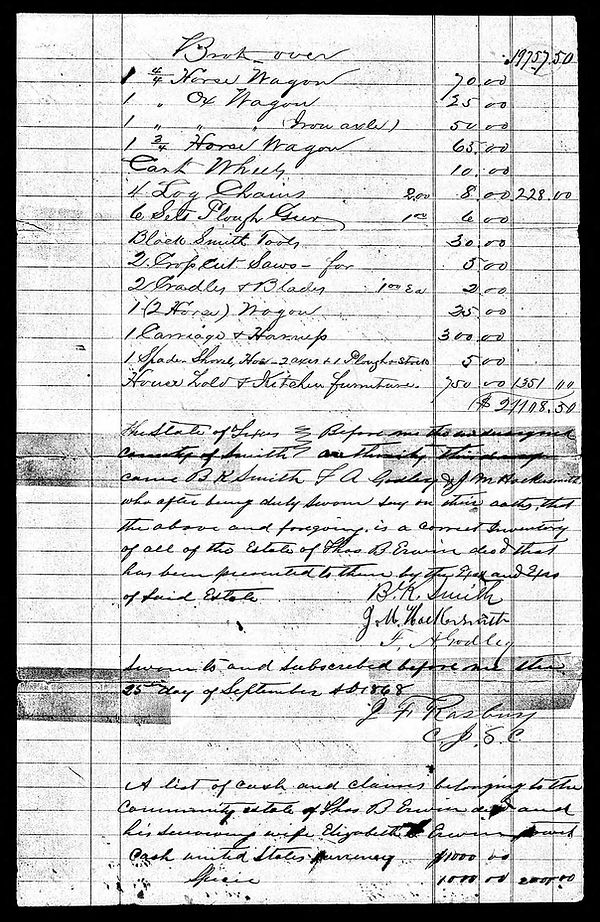 Brot over 19757.50
1 4/4 Horse Wagon 70.00
1 " Ox Wagon 25.00
1 " " " (Iron axle) 50.00
1 3/4 Horse Wagon 65.00
Cart Wheels 10.00
4 Log Chains 2.00 8.00 228.00
6 Sets Plough Gear 1.00 6.00
Black Smith Tools 30.00
2 Cross cut Saws - for 5.00
2 Cradles & Blades 1.00 Ea 2.00
1 (2 Horse) Wagon 25.00
1 Carriage & Harness 300.00
1 Spade Shovel, Hoe - 2 axes & 1 Plough & Stock 5.00
House Hold & Kitchen furniture. 750.00 1351 00
($ 21108.50
The State of Texas Before me the undersigned
county of Smith authority this day
came B K Smith F A Godley & J M Hackersmith
who after being duly sworn say on their oaths, that
the above and foregoing is a correct Inventory
of all of the Estate of Thos B. Erwin decd that
has been presented to them by the Exx and Exrs
of Said Estate B. K. Smith
J. M. Hackersmith
F. A Godley
Sworn to and subscribed before me this
25th day of September AD 1868
J F Rasbury
C J. S. C.
A list of cash and claims belonging to the
Community estate of Thos B Erwin decd and
his surviving wife Elizabeth Erwin towit
Cash united States currency $1000 00
" Specie 1000 00 2000.00